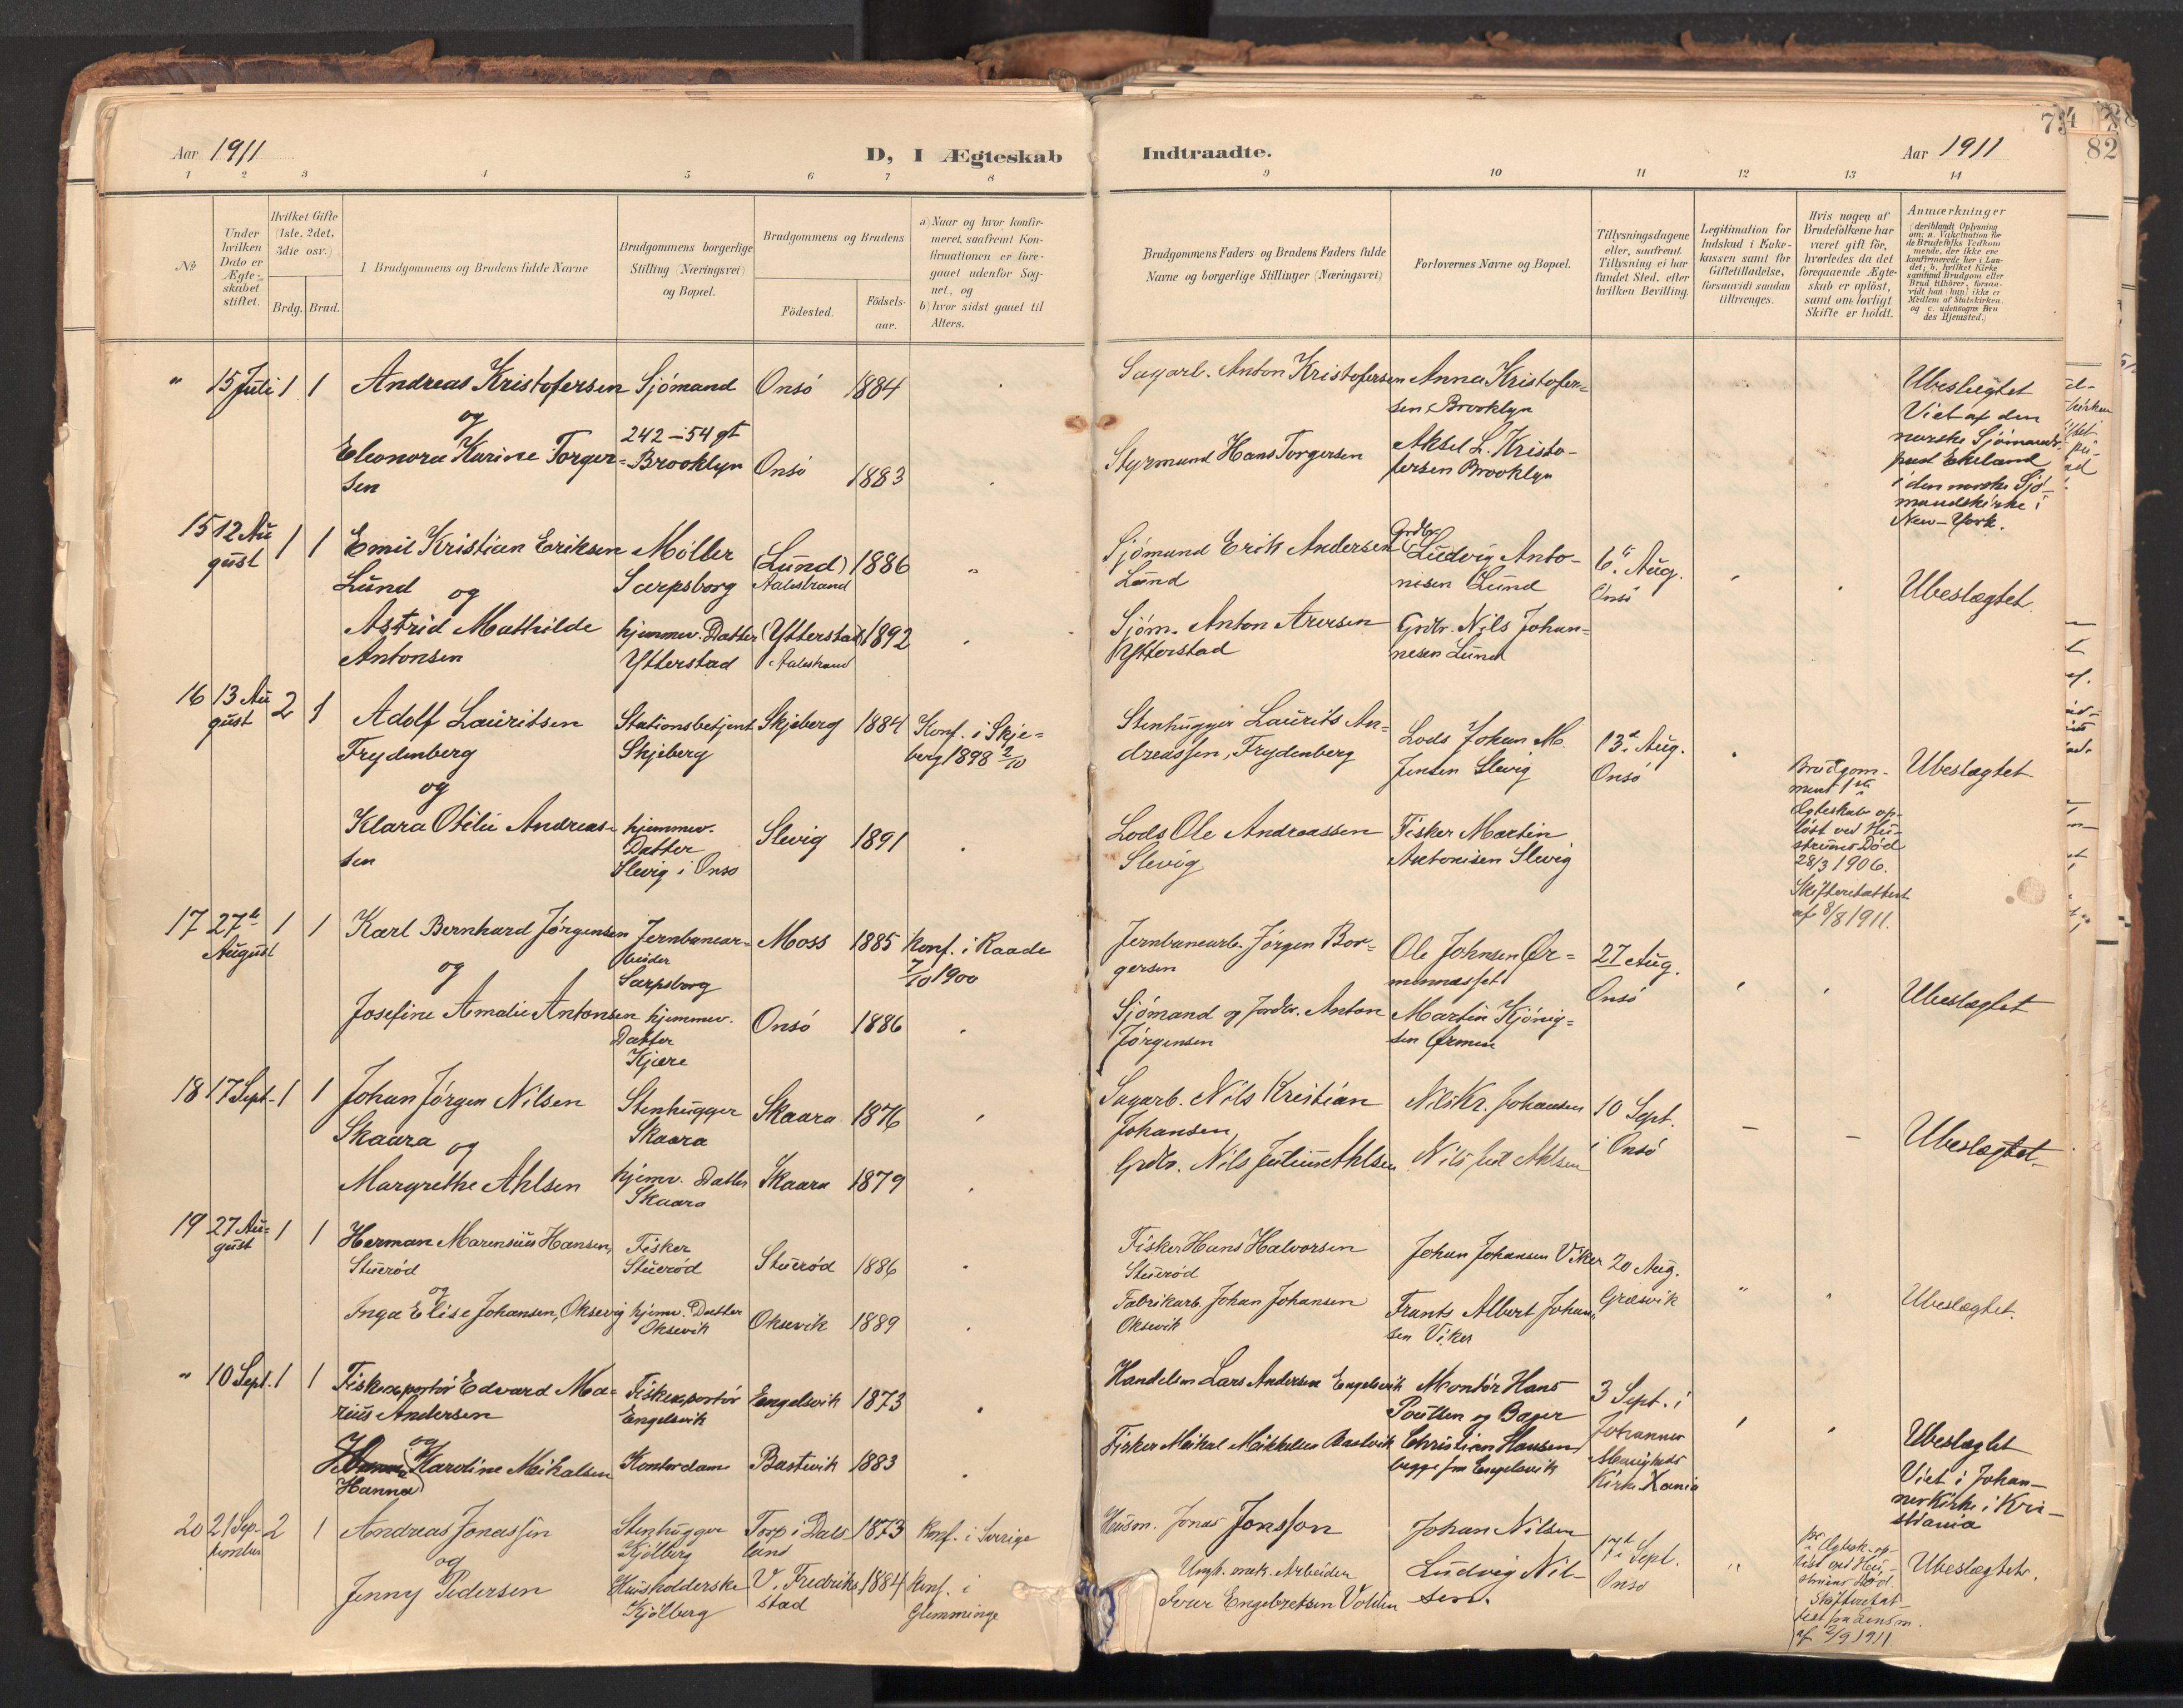 Aar 1911
D, I Ægteskab
Indtraadte.
Aar 1911
82
1 2 3 4 5 6 7 8
9 10 11 12 13 14
No
Under hvilken Dato er Ægteskabet stiftet.
Hvilket Gifte (1ste, 2det, 3die osv.)
Brdg. Brud.
1 Brudgommens og Brudens fulde Navne
Brudgommens borgerlige Stilling (Næringsvei) og Bopæl.
Brudgommens og Brudens
Födested.
Födselsaar.
a) Naar og hvor konfirmeret, saafremt Konfirmationen er foregaaet udenfor Sognet, og
b) hvor sidst gaaet til Alters.
Brudgommens Faders og Brudens Faders fulde Navne og borgerlige Stillinger (Næringsvei)
Forlovernes Navne og Bopæl.
Tillysningsdagene eller, saafremt Tillysning ei har fundet Sted, efter hvilken Bevilling.
Legitimation for Indskud i Enkekassen samt for Giftetilladelse, forsaavidt saadan tiltrænges.
Hvis nogen af Brudefolkene har været gift för, hvorledes da det foregaaende Ægteskab er oplöst, samt om lovligt Skifte er holdt.
Anmærkninger (deriblandt Oplysning om: a. Vakcination for de Brudefolks Vedkommende, der ikke ere konfirmerede her i Landet; b. hvilket Kirkesamfund Brudgom eller Brud tilhörer, forsaavidt han (hun) ikke er Medlem af Statskirken. og c. udensogns Brudes Hjemsted.)
" 15 Juli 1 1
Andreas Kristofersen
og
Eleonora Karine Torger=
sen
Sjömand
242 – 54 gt
Brooklyn
Onsö 1884
Onsö 1883
Sagarb. Anton Kristofersen
Styrmand Hans Torgersen
Anna Kristofer=
sen Brooklyn
Aksel L. Kristo-
fersen Brooklyn
Ubeslægtet
Viet af den
norske Sjömands-
præst Ekeland
i den norske Sjö-
mandskirke i
New-York.
15 12 Au
gust 1 1
Emil Kristian Eriksen
Lund
og
Astrid Mathilde
Antonsen
Möller
Sarpsborg
hjemmev. Datter
Ytterstad
(Lund) 1886
Aalestrand
(Ytterstad) 1892
Aalestrand
Sjömand Erik Andersen
Lund
Sjöm. Anton Arersen
Ytterstad
Grdbr.
Ludvig Anto-
nisen Lund
Grdbr. Nils Johan=
nesen Lund
6. Aug.
Onsö
Ubeslægtet.
16 13 Au
gust 2 1
Adolf Lauritsen
Frydenberg
og
Klara Otilie Andreas-
sen
Stationsbetjent
Skjeberg
hjemmev.
Datter
Slevig i Onsö
Skjeberg 1884
Slevig 1891
Konf. i Skje=
berg 1898 2/10
Stenhugger Laurits An=
dreassen, Frydenberg
Lods Ole Andreassen
Slevig
Lods Johan M.
Jensen Slevig
Fisker Martin
Antonisen Slevig
13de Aug.
Onsö
Brudgom-
mens 1ste
Ægteskab op-
löst ved Hu-
struens Död
28/3 1906.
Skifteretsattest
af 8/8 1911.
Ubeslægtet
17 27de
August 1 1
Karl Bernhard Jørgensen
og
Josefine Amalie Antonsen
Jernbanear-
beider
Sarpsborg
hjemmev.
Datter
Kjære
Moss 1885
Onsö 1886
konf. i Raade
7/10 1900
Jernbanearb. Jörgen Bor=
gersen
Sjömand og Jordbr. Anton
Jörgensen
Ole Johnsen Ør=
mennæsset
Martin Kjönig=
sen Ørmen
27 Aug.
Onsö
Ubeslægtet
18 17 Sept. 1 1
Johan Jörgen Nilsen
Skaara og
Margrethe Ahlsen
Stenhugger
Skaara
hjemv. Datter
Skaara
Skaara 1876
Skaara 1879
Sagarb. Nils Kristian
Johansen,
Grdbr. Nils Julius Ahlsen
Nils Kr. Johansen
Nils Jul Ahlsen
10 Sept.
i Onsö
Ubeslægtet
19 27 Au=
gust 1 1
Herman Marensius Hansen,
Stuerød
og
Inga Elise Johansen, Oksevig
Fisker
Stueröd
hjemv. Datter
Oksevik
Stueröd 1886
Oksevik 1889
Fisker Hans Halvorsen
Stueröd
Fabrikarb. Johan Johansen
Oksevik
Johan Johansen Viker
Frants Albert Johan
sen Viker
20 Aug.
Græsvik
Ubeslægtet.
" 10 Sept. 1 1
Fiskexportör Edvard Ma=
rius Andersen
og
Karoline Mikalsen
Hanna
Fiskexportör
Engelsvik
Kontordame
Engelsvik 1873
Bastevik 1883
Handelsm Lars Andersen Engelsvik
Fisker Meikal Mikkelsen Bastvik
Montör Hans
Poulsen og Bager
Christian Hansen
begge fra Engelsvik
3 Sept. i
Johannes
Menigheds
Kirke Xania
Ubeslægtet
Viet i Johan-
neskirke i Kri-
stiania
20 21 Sep-
tember 2 1
Andreas Jonassen
og
Jenny Pedersen
Stenhugger
Kjölberg
Husholderske
Kjölberg
Torp i Dals- 1873
land
V. Fredrik- 1884
stad
Konf. i Sverige
Konf. i
Glemminge
Husm. Jonas Jonsson
Ungk. Arbeider
Engebretsen Volden
Johan Nilsen
Ludvig Nil-
sen.
Sept.
Onsö
Ægtesk. op-
löst ved Hu-
struens Död.
Skifteretsat-
test fra Lensm.
af 2/9 1911
Ubeslægtet.